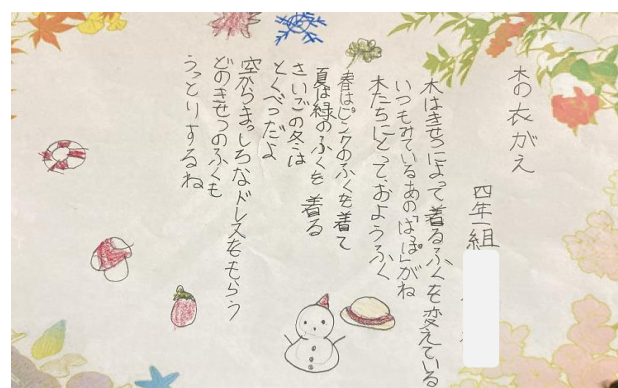 木の衣がえ
四年 組
木はきせつによって着るふくを変えている
いつもみているあの「はっぱ」がね
木たちにとって、おようふく
春はピンクのふくを着て
夏は緑のふくを着る
さいごの冬は
とくべつだよ
空からまっしろなドレスをもらう
どのきせつのふくも
うっとりするね